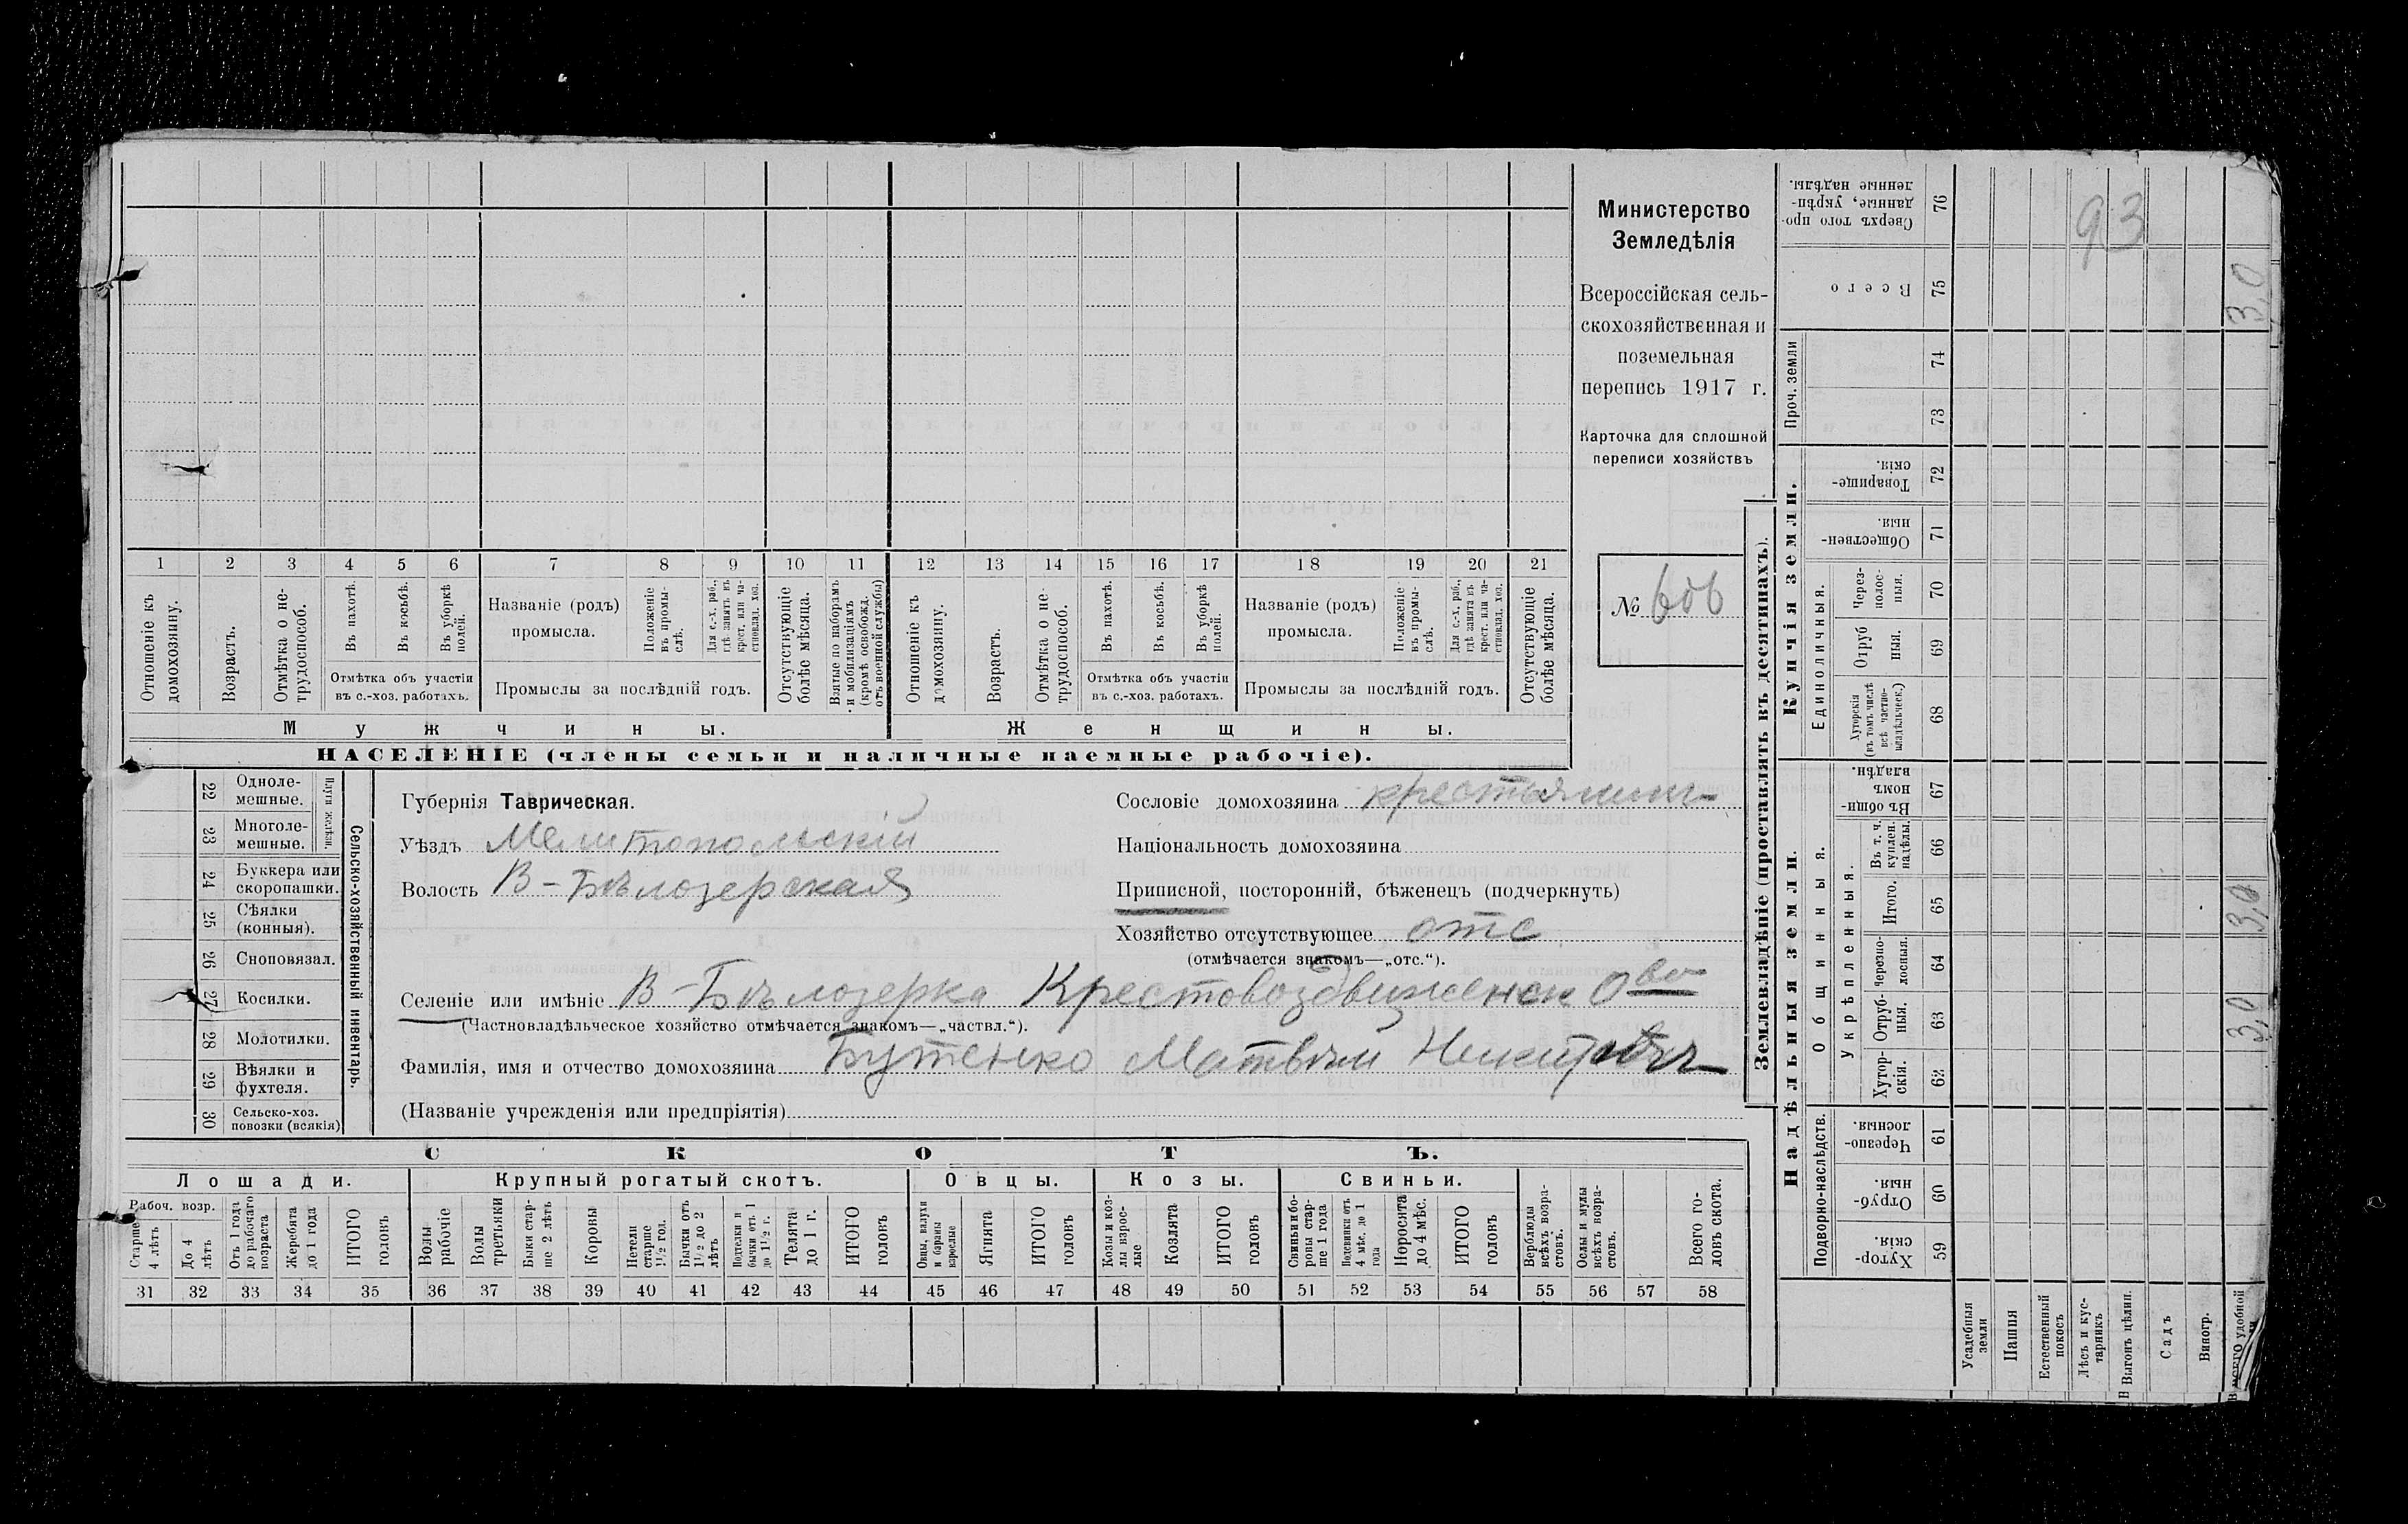 Министерство
Земледѣлія
Всероссійская сель-
скохозяйственная и
поземельная
перепись 1917 г.
Карточка для сплошной
переписи хозяйствъ
№ 606
1 2 3 4 5 6 7 8 9 10 11 12 13 14 15 16 17 18 19 20 21
Отношеніе къ домохозяину.
Возрастъ.
Отмѣтка о не-трудоспособ.
Въ пахотѣ.
Въ косьбѣ.
Въ уборкѣ полей.
Отмѣтка объ участіи въ с.-хоз. работахъ.
Названіе (родъ) промысла.
Положеніе въ промы-слѣ.
Для с.-х. раб., гдѣ занятъ въ крест. или ча-стновлад. хоз.
Промыслы за послѣдній годъ.
Отсутствующіе болѣе мѣсяца.
Взятые по наборамъ и мобилизаціямъ (кромѣ освобожд. отъ военной службы)
Отношеніе къ домохозяину.
Возрастъ.
Отмѣтка о не-трудоспособ.
Въ пахотѣ.
Въ косьбѣ.
Въ уборкѣ полей.
Отмѣтка объ участіи въ с.-хоз. работахъ.
Названіе (родъ) промысла.
Положеніе въ промы-слѣ.
Для с.-х. раб., гдѣ занята въ крест. или ча-стновлад. хоз.
Промыслы за послѣдній годъ.
Отсутствующіе болѣе мѣсяца.
Мужчины. Женщины.
НАСЕЛЕНІЕ (члены семьи и наличные наемные рабочіе).
22 Одноле-мешные.
23 Многоле-мешные.
Плуги желѣзн.
24 Буккера или скоропашки.
25 Сѣялки (конныя).
26 Сноповязал.
27 Косилки.
28 Молотилки.
29 Вѣялки и фухтеля.
30 Сельско-хоз. повозки (всякія)
Сельско-хозяйственный инвентарь.
Губернія Таврическая.
Уѣздъ Мелитопольскій
Волость В-Бѣлозерская
Сословіе домохозяина крестьянинъ
Національность домохозяина
Приписной, посторонній, бѣженецъ (подчеркнуть)
Хозяйство отсутствующее отс
(отмѣчается знакомъ—„отс.“).
Селеніе или имѣніе В-Бѣлозерка Крестовоздвиженск О-во
(Частновладѣльческое хозяйство отмѣчается знакомъ—„частвл.“).
Фамилія, имя и отчество домохозяина Бутенко Матвѣй Никитовъ
(Названіе учрежденія или предпріятія)
СКОТЪ.
Лошади. Крупный рогатый скотъ. Овцы. Козы. Свиньи.
Рабоч. возр.
Старше 4 лѣтъ
До 4 лѣтъ
Отъ 1 года до рабочаго возраста
Жеребята до 1 года
ИТОГО головъ
Волы рабочіе
Волы третьяки
Быки стар-ше 2 лѣтъ
Коровы
Нетели старше 1½ гол.
Бычки отъ 1½ до 2 лѣтъ
Подтелки и бычки отъ 1 до 1½ г.
Телята до 1 г.
ИТОГО головъ
Овцы, валухи и бараны взрослые
Ягнята
ИТОГО головъ
Козы и коз-лы взрос-лые
Козлята
ИТОГО головъ
Свиньи и бо-ровы стар-ше 1 года
Подсвинки отъ 4 мѣс. до 1 года
Поросята до 4 мѣс.
ИТОГО головъ
Верблюды всѣхъ возра-стовъ.
Ослы и мулы всѣхъ возра-стовъ.
Всего го-ловъ скота.
31 32 33 34 35 36 37 38 39 40 41 42 43 44 45 46 47 48 49 50 51 52 53 54 55 56 57 58
Землевладѣніе (проставлять въ десятинахъ).
Купчія земли.
Проч. земли
Единоличныя.
Надѣльныя земли.
Общинныя.
Укрѣпленныя.
Подворно-наслѣдств.
Сверхъ того про-данные, укрѣп-ленные надѣлы. 76
Всего 75 3,0
74
73
Товарище-скія. 72
Обществен-ныя. 71
Через-полос-ныя. 70
Отруб ныя. 69
Хуторскія (въ томъ числѣ всѣ частно-владѣльческ.) 68
Въ общи-номъ владѣн. 67
Въ т. ч. куплен. надѣлы. 66
Итого. 65 3,0
черезпо-лосныя. 64
Отруб-ныя. 63 3,0
Хутор-скія. 62
Черезпо-лосныя. 61
Отруб-ныя. 60
Хутор-скія. 59
93
Усадебныя земли
Пашня
Естественный покосъ
Лѣсъ и кус-тарникъ
Выгонъ цѣлин.
Садъ
Виногр.
Всего удобной